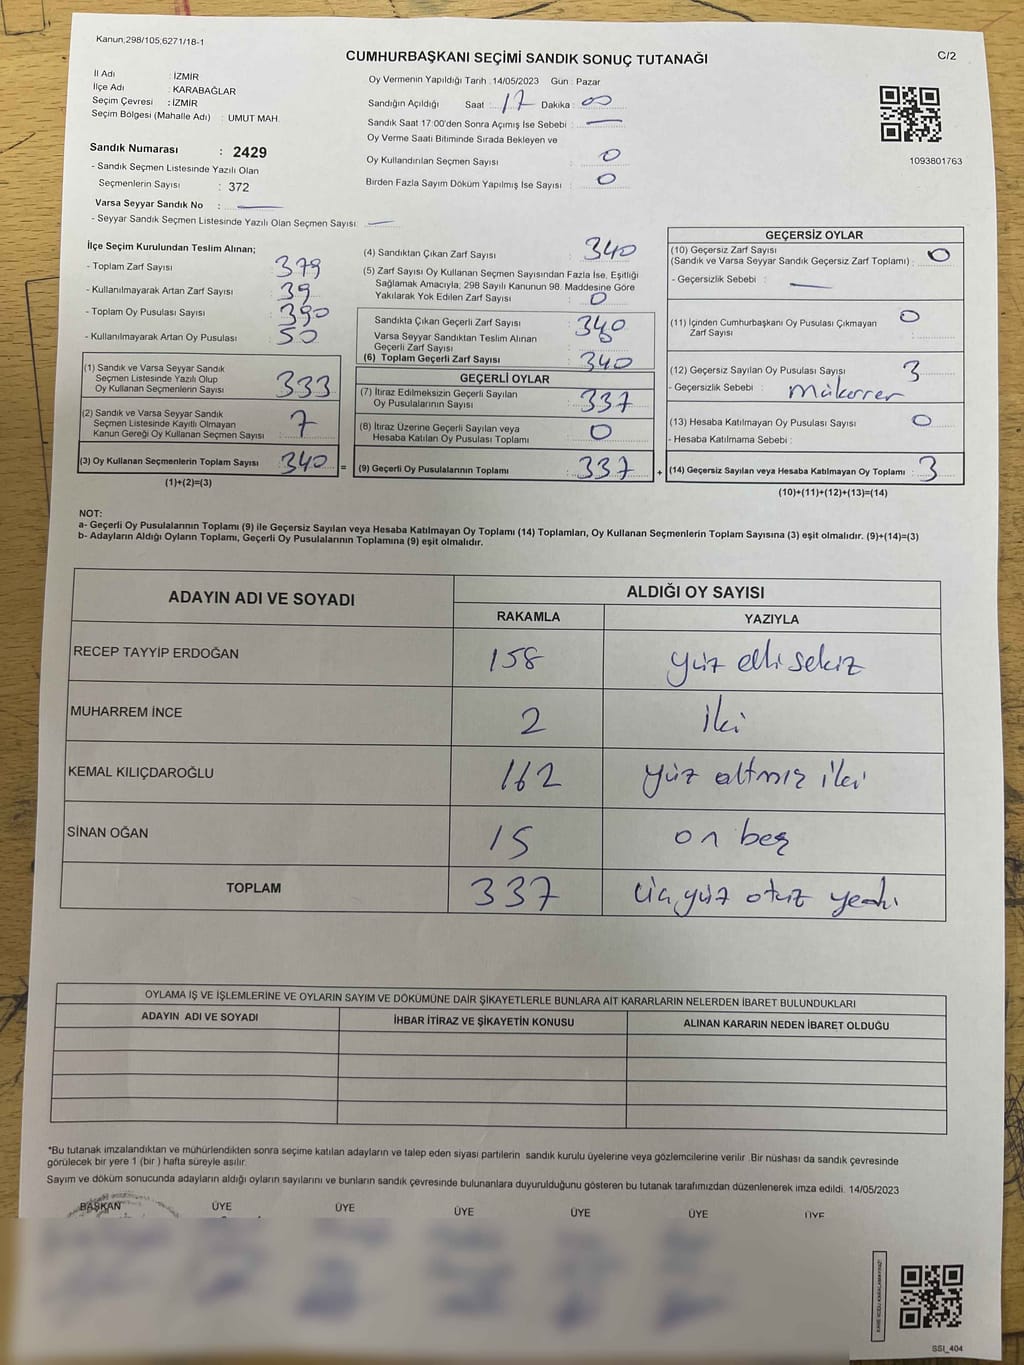 Kanun;298/105,6271/18-1
C/2
CUMHURBAŞKANI SEÇİMİ SANDIK SONUÇ TUTANAĞI
İl Adı : İZMİR
İlçe Adı : KARABAĞLAR
Seçim Çevresi : İZMİR
Seçim Bölgesi (Mahalle Adı) : UMUT MAH.
Sandık Numarası : 2429
- Sandık Seçmen Listesinde Yazılı Olan
Seçmenlerin Sayısı : 372
Varsa Seyyar Sandık No :
- Seyyar Sandık Seçmen Listesinde Yazılı Olan Seçmen Sayısı:
Oy Vermenin Yapıldığı Tarih : 14/05/2023 Gün : Pazar
Sandığın Açıldığı Saat : 17 Dakika : 00
Sandık Saat 17:00'den Sonra Açımış İse Sebebi :
Oy Verme Saati Bitiminde Sırada Bekleyen ve
Oy Kullandırılan Seçmen Sayısı : 0
Birden Fazla Sayım Döküm Yapılmış İse Sayısı : 0
1093801763
İlçe Seçim Kurulundan Teslim Alınan;
- Toplam Zarf Sayısı : 379
- Kullanılmayarak Artan Zarf Sayısı : 39
- Toplam Oy Pusulası Sayısı : 390
- Kullanılmayarak Artan Oy Pusulası : 50
(1) Sandık ve Varsa Seyyar Sandık
Seçmen Listesinde Yazılı Olup
Oy Kullanan Seçmenlerin Sayısı : 333
(2) Sandık ve Varsa Seyyar Sandık
Seçmen Listesinde Kayıtlı Olmayan
Kanun Gereği Oy Kullanan Seçmen Sayısı : 7
(3) Oy Kullanan Seçmenlerin Toplam Sayısı : 340 =
(1)+(2)=(3)
(4) Sandıktan Çıkan Zarf Sayısı : 340
(5) Zarf Sayısı Oy Kullanan Seçmen Sayısından Fazla İse, Eşitliği
Sağlamak Amacıyla, 298 Sayılı Kanunun 98. Maddesine Göre
Yakılarak Yok Edilen Zarf Sayısı : 0
Sandıkta Çıkan Geçerli Zarf Sayısı : 340
Varsa Seyyar Sandıktan Teslim Alınan
Geçerli Zarf Sayısı :
(6) Toplam Geçerli Zarf Sayısı : 340
GEÇERLİ OYLAR
(7) İtiraz Edilmeksizin Geçerli Sayılan
Oy Pusulalarının Sayısı : 337
(8) İtiraz Üzerine Geçerli Sayılan veya
Hesaba Katılan Oy Pusulası Toplamı : 0
(9) Geçerli Oy Pusulalarının Toplamı : 337 +
GEÇERSİZ OYLAR
(10) Geçersiz Zarf Sayısı
(Sandık ve Varsa Seyyar Sandık Geçersiz Zarf Toplamı) : 0
- Geçersizlik Sebebi :
(11) İçinden Cumhurbaşkanı Oy Pusulası Çıkmayan
Zarf Sayısı : 0
(12) Geçersiz Sayılan Oy Pusulası Sayısı : 3
- Geçersizlik Sebebi : mükerrer
(13) Hesaba Katılmayan Oy Pusulası Sayısı : 0
- Hesaba Katılmama Sebebi :
(14) Geçersiz Sayılan veya Hesaba Katılmayan Oy Toplamı : 3
(10)+(11)+(12)+(13)=(14)
NOT:
a- Geçerli Oy Pusulalarının Toplamı (9) ile Geçersiz Sayılan veya Hesaba Katılmayan Oy Toplamı (14) Toplamları, Oy Kullanan Seçmenlerin Toplam Sayısına (3) eşit olmalıdır. (9)+(14)=(3)
b- Adayların Aldığı Oyların Toplamı, Geçerli Oy Pusulalarının Toplamına (9) eşit olmalıdır.
ADAYIN ADI VE SOYADI
ALDIĞI OY SAYISI
RAKAMLA YAZIYLA
RECEP TAYYİP ERDOĞAN 158 yüz elli sekiz
MUHARREM İNCE 2 iki
KEMAL KILIÇDAROĞLU 162 yüz altmış iki
SİNAN OĞAN 15 on beş
TOPLAM 337 üç yüz otuz yedi
OYLAMA İŞ VE İŞLEMLERİNE VE OYLARIN SAYIM VE DÖKÜMÜNE DAİR ŞİKAYETLERLE BUNLARA AİT KARARLARIN NELERDEN İBARET BULUNDUKLARI
ADAYIN ADI VE SOYADI İHBAR İTİRAZ VE ŞİKAYETİN KONUSU ALINAN KARARIN NEDEN İBARET OLDUĞU
*Bu tutanak imzalandıktan ve mühürlendikten sonra seçime katılan adayların ve talep eden siyasi partilerin sandık kurulu üyelerine veya gözlemcilerine verilir .Bir nüshası da sandık çevresinde
görülecek bir yere 1 (bir ) hafta süreyle asılır.
Sayım ve döküm sonucunda adayların aldığı oyların sayılarını ve bunların sandık çevresinde bulunanlara duyurulduğunu gösteren bu tutanak tarafımızdan düzenlenerek imza edildi. 14/05/2023
BAŞKAN ÜYE ÜYE ÜYE ÜYE ÜYE ÜYE
KARE KODU KARALAMAYINIZ!
SSI_404